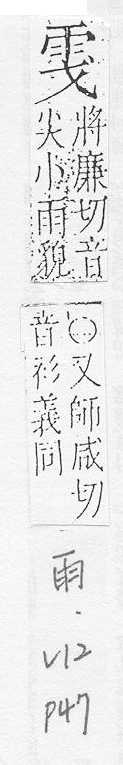 將廉切音
尖小雨貌
〇又師咸切
音衫義同
雨.
V12
P47